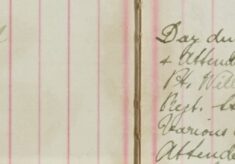 Day du
& Attend
Pt. Will
Regt. 
Various
Attende